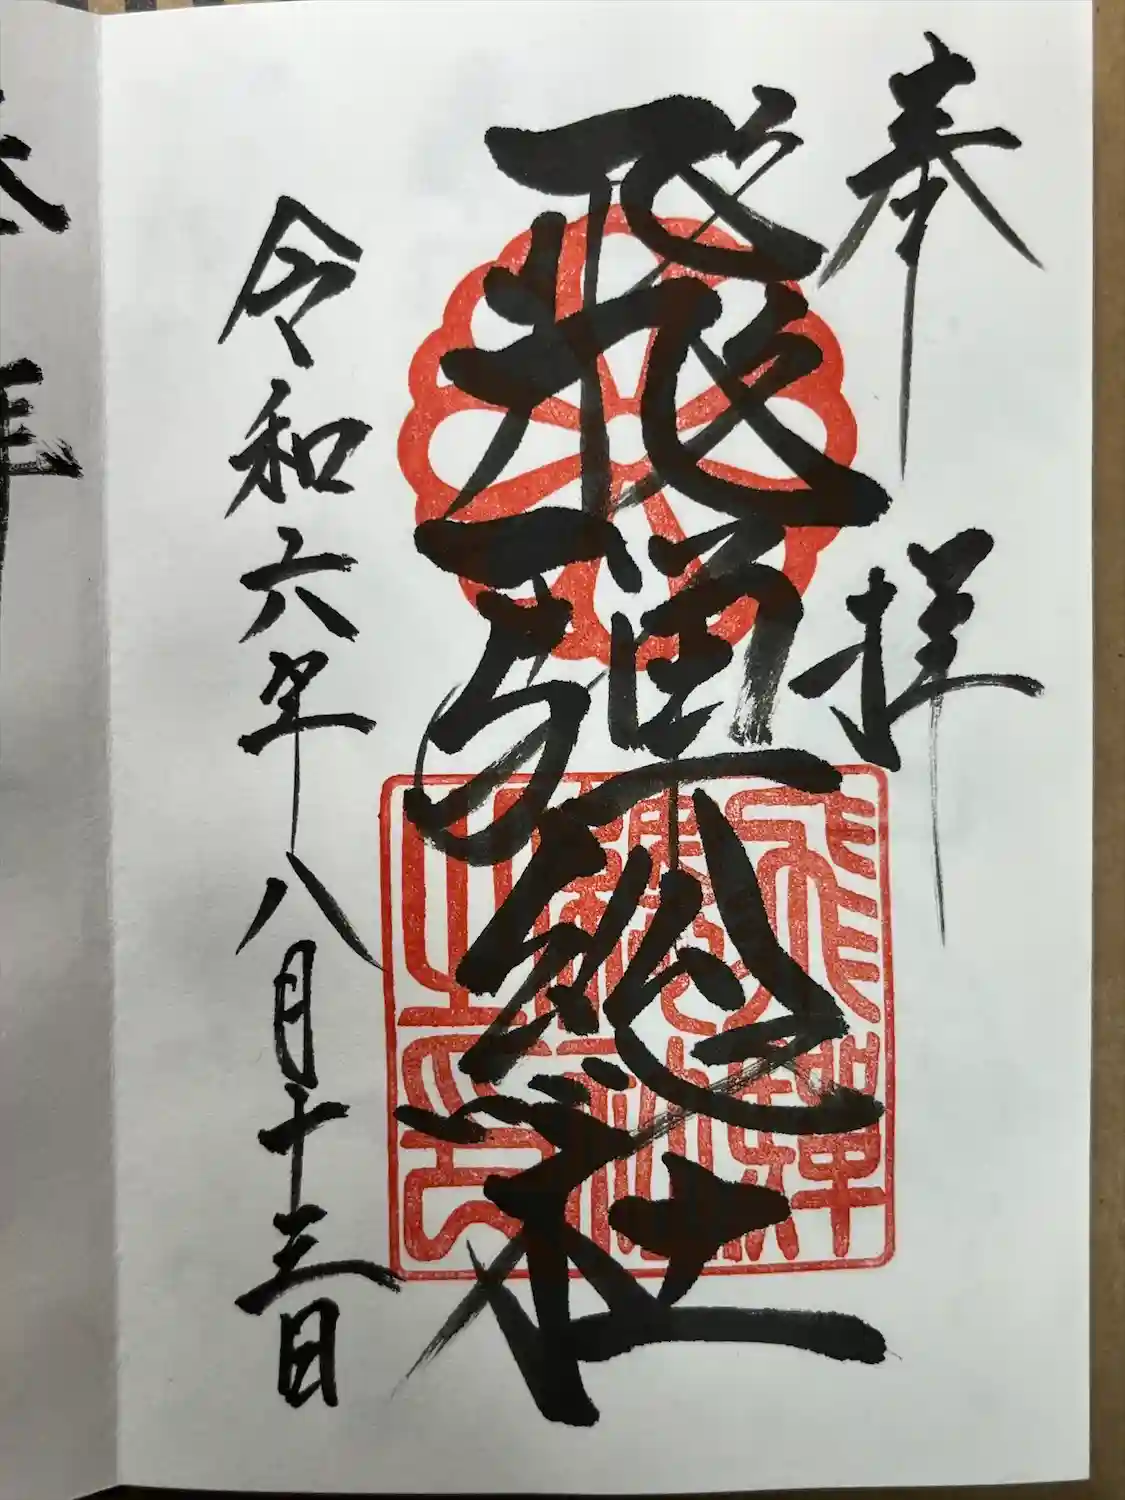 奉拝
飛騨總社
飛騨總社之印
令和六年八月十三日